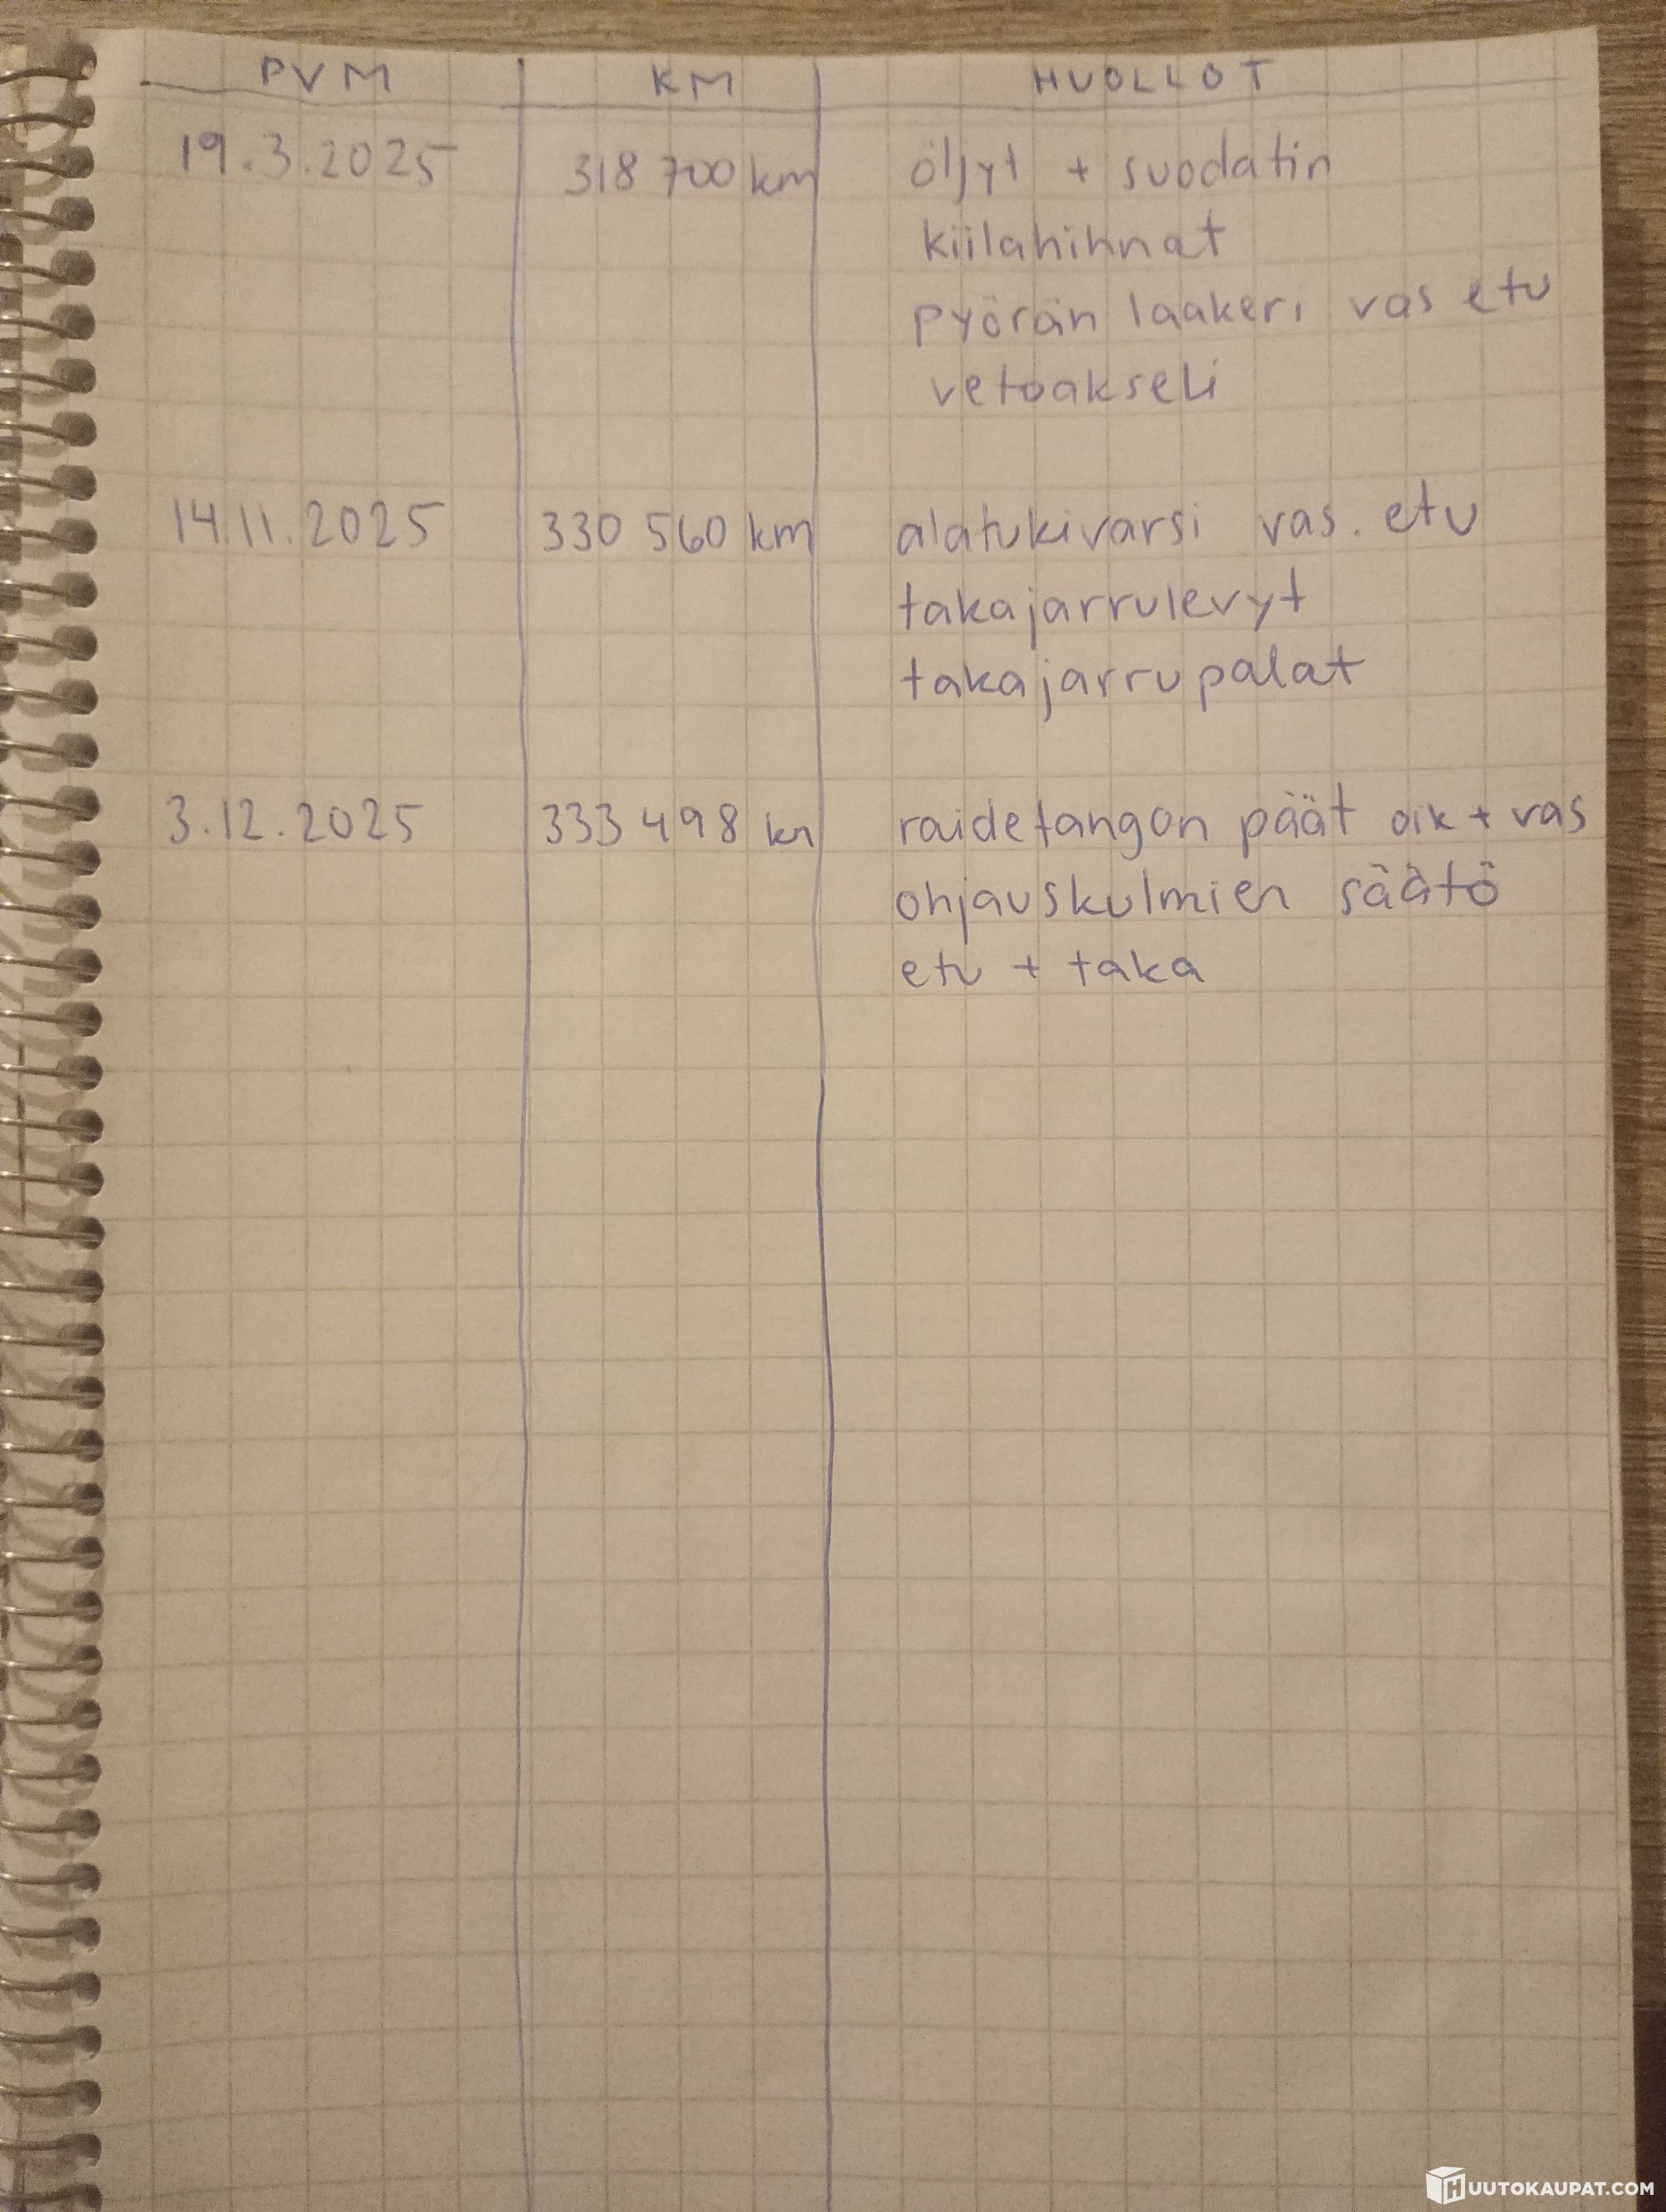 PVM KM HUOLLOT
19.3.2025 318 700 km öljyt + suodatin
kiilahihnat
pyörän laakeri vas etu
vetoakseli
14.11.2025 330 560 km alatukivarsi vas. etu
takajarrulevyt
takajarrupalat
3.12.2025 333 498 km raidetangon päät oik + vas
ohjauskulmien säätö
etu + taka
HUUTOKAUPAT.COM